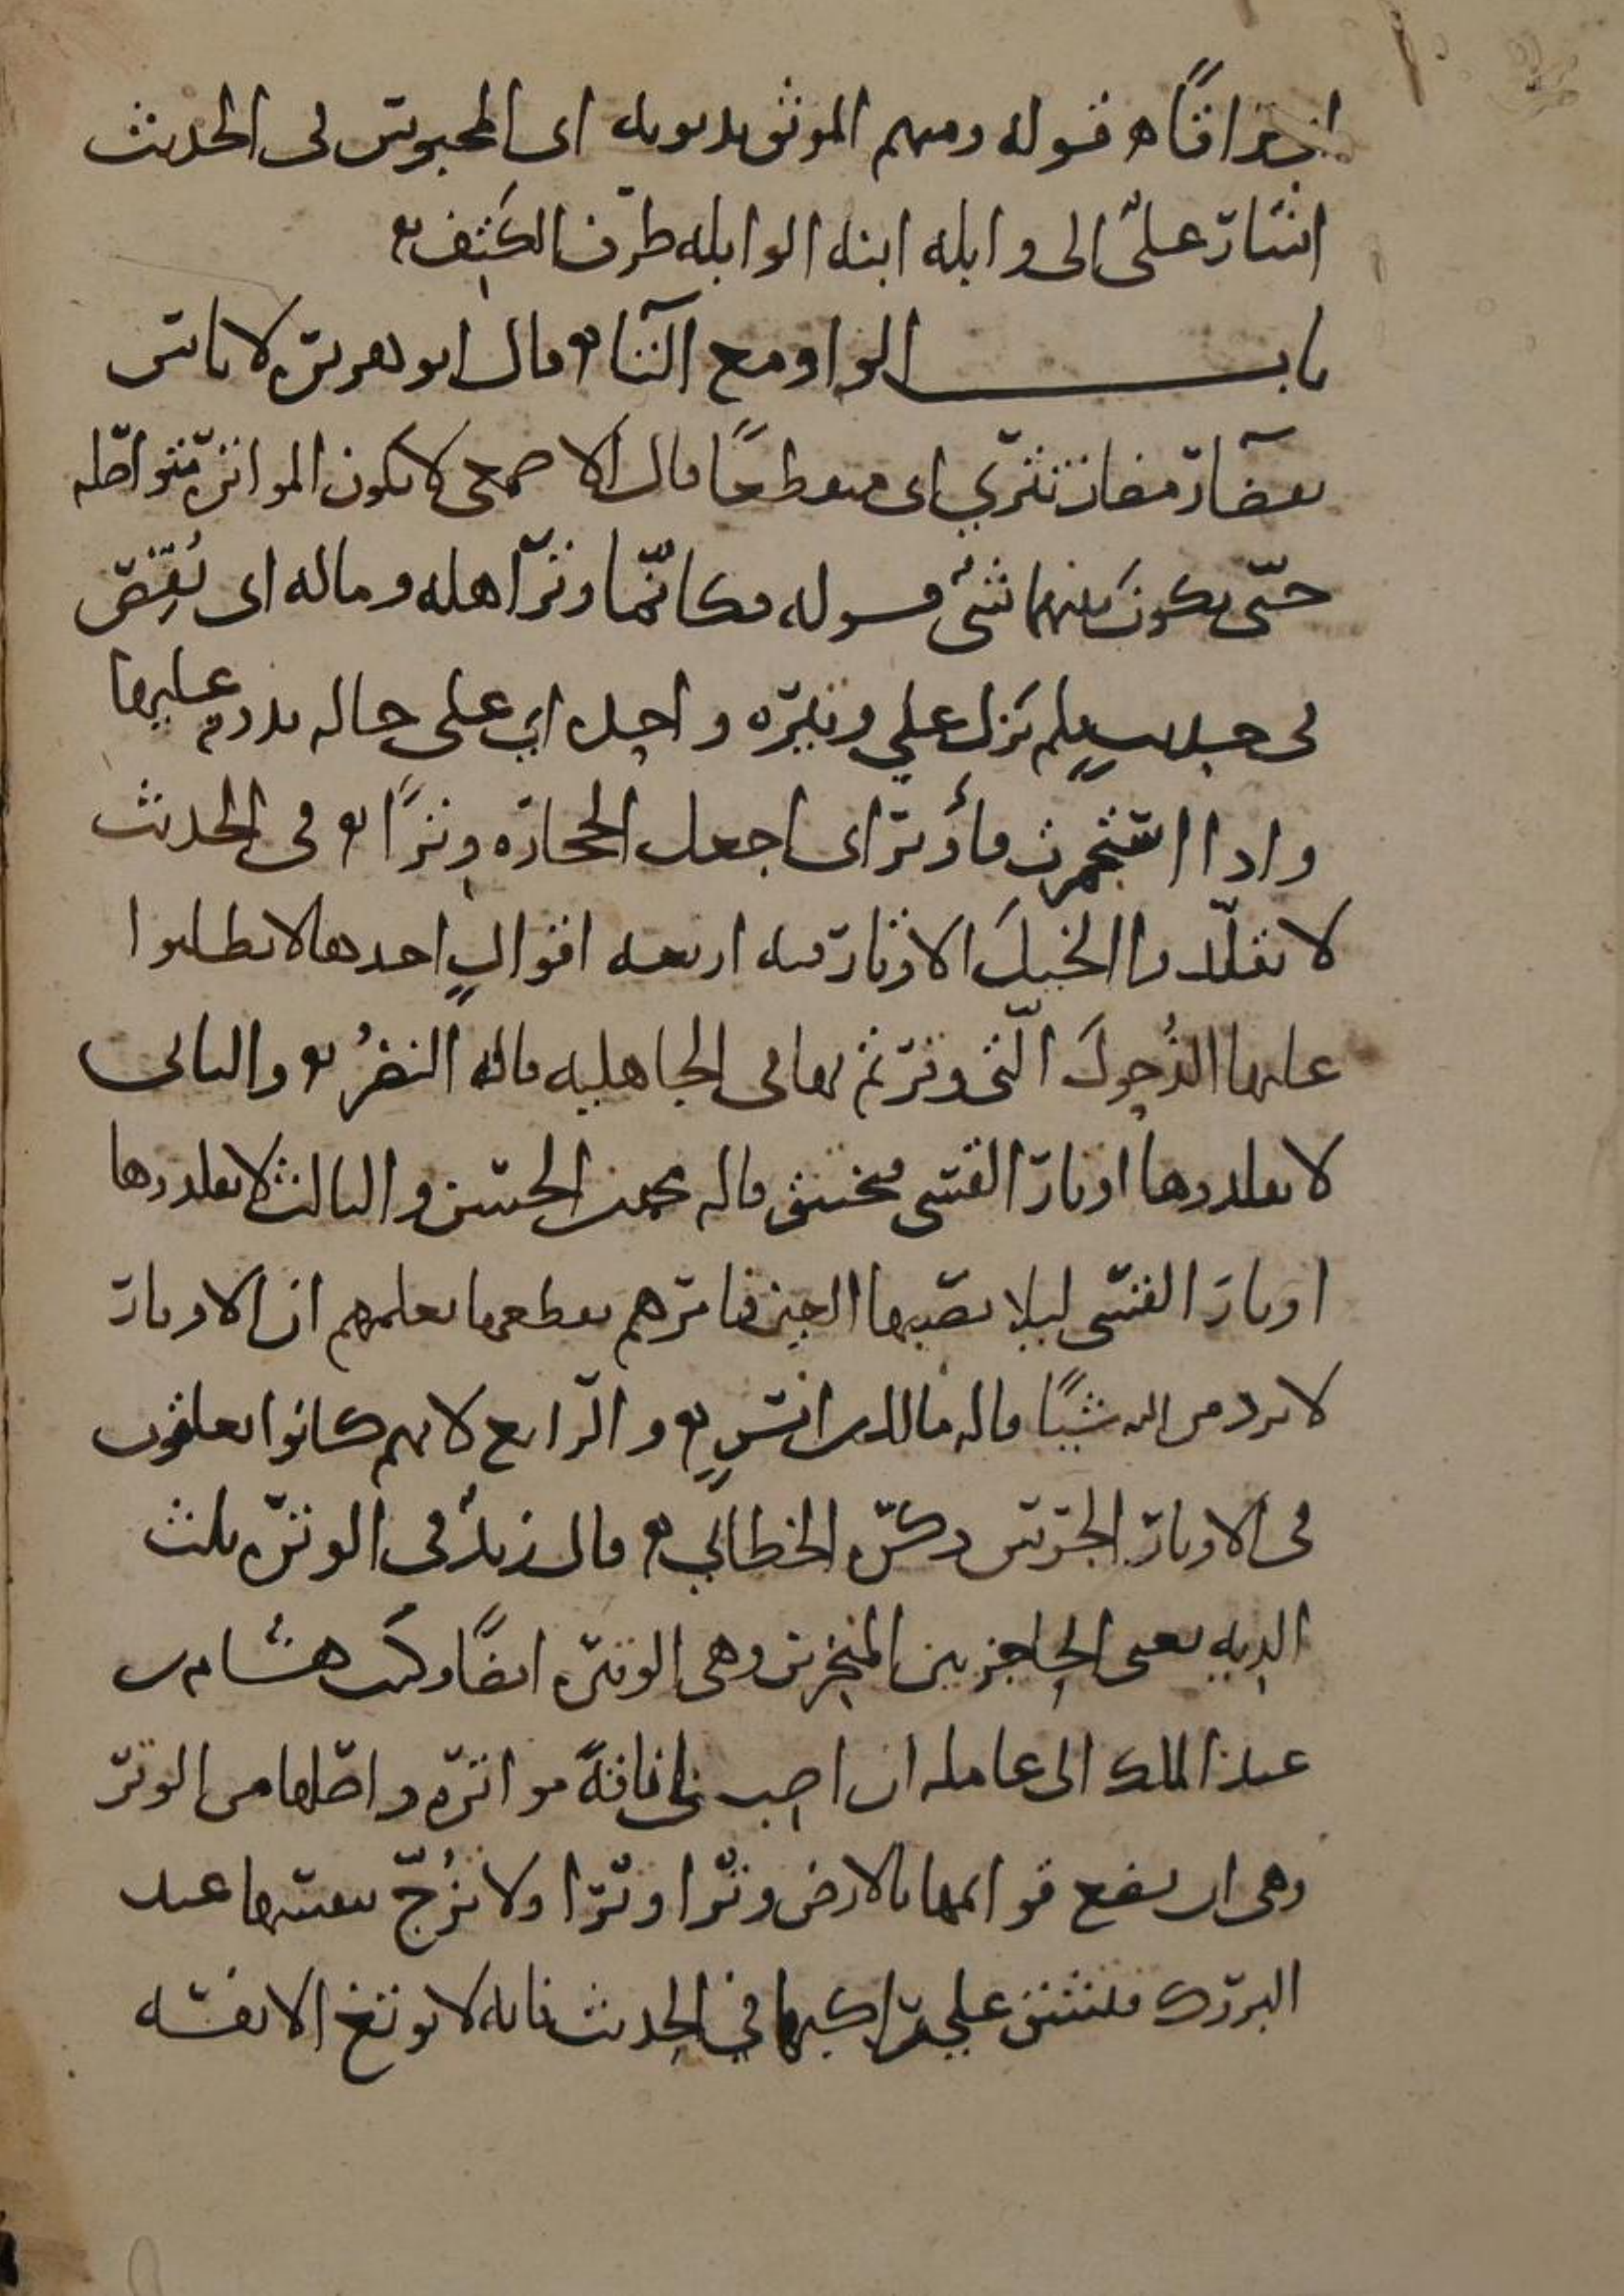 احراقًا ه قوله ومنهم الموبق بذنوبه اى المحبوس فى الحديث
اشار علىّ الى وابله ابنه الوابله طرف الكتف ه
باب الواو مع التا ه قال ابو هريره لا باس
بقضآ رمضان تترى اى متقطعًا قال الاصمعى لا تكون المواتره متواصله
حتّى يكون بينهما شىٌ قوله فكانّما وترَ اهله وماله اى نُقِصَ
فى حديث فلم يَزل على وتيره واحده اى على حاله يدوم عليها
واذا استجمرت فأوتر اى اجعل الحجاره وِترًا ه فى الحديث
لا تقلّدوا الخيلَ الاوتار فيه اربعه اقوالٍ احدها لا تطلبوا
عليها الذُحولَ الّتى وترتم بها فى الجاهليه قاله النضرُ ه والثانى
لا تقلدوها اوتار القسى فتختنق قاله محمد بن الحسن والثالث لا تقلدوها
اوتارَ القسّى ليلا تصيبها العين فامرهم بقطعها يعلمهم ان الاوتار
لا ترد من الله شيئًا قاله مالك بن انسٍ ه والرّابع لانهم كانوا يعلقون
فى الاوتار الجرس ذكره الخطابي ه قال زيدٌ فى الوتره ثلث
الديه يعنى الحاجز بين المنخرين وهى الوتيره ايضًا وكتب هشام بن
عبد الملك الى عامله ان اصب لى ناقةً مواتره واصلها من الوتر
وهى ان تضع قوائمها بالارض وترًا وترًا ولا تزُجّ بنفسها عند
البروك فتشق على راكبها في الحديث فانه لا يوتغ الا نفسه